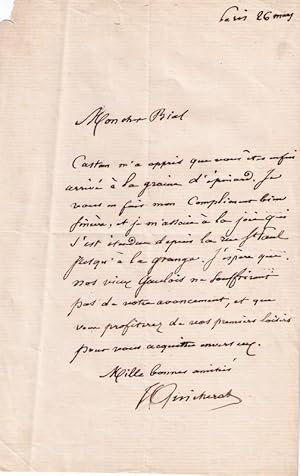 Paris 26 mars
Mon cher Bial
Castan m'a appris que vous êtes enfin
arrivé à la graine d'épinard. Je
vous en fais mon compliment bien
sincère, et je m'associe à la joie qui
s'est étendue depuis la rue St Paul
jusqu'à la grange. J'espère que
nos vieux Gaulois ne souffriront
pas de votre avancement, et que
vous profiterez de vos premiers loisirs
pour vous acquitter envers eux.
Mille bonnes amitiés
J Quicherat